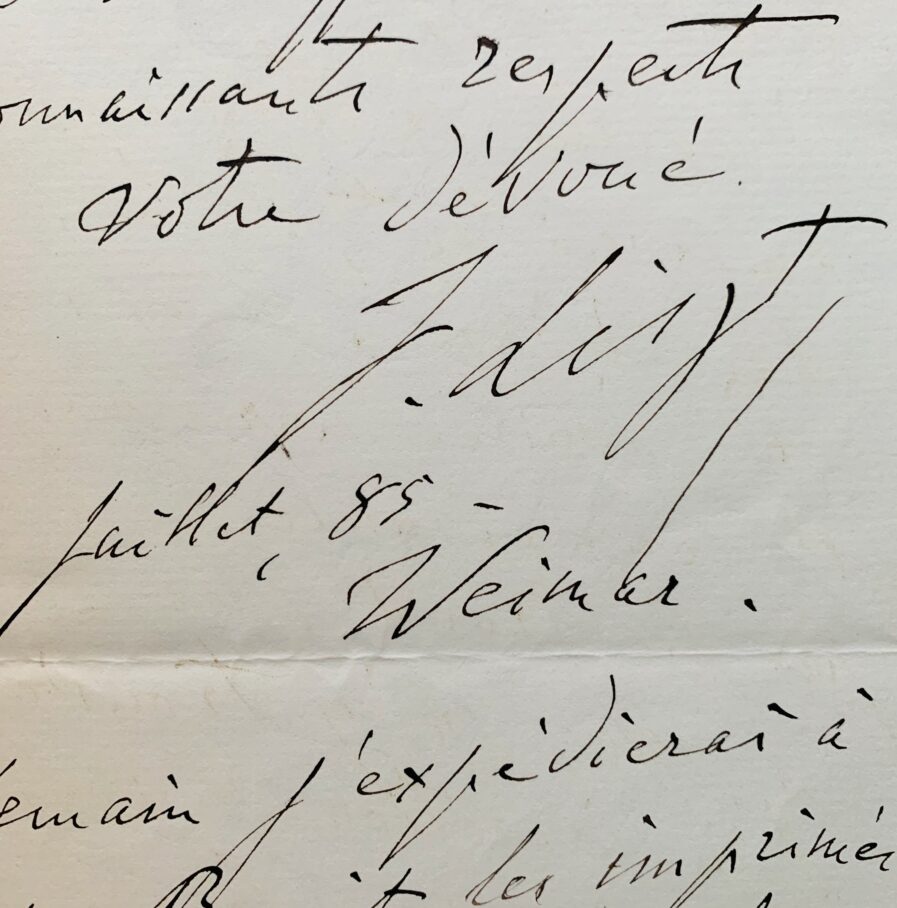 onnaissants respects
Votre dévoué
F. Liszt
Juillet, 85 -
Weimar.
demain j'expédierai à
les imprimés